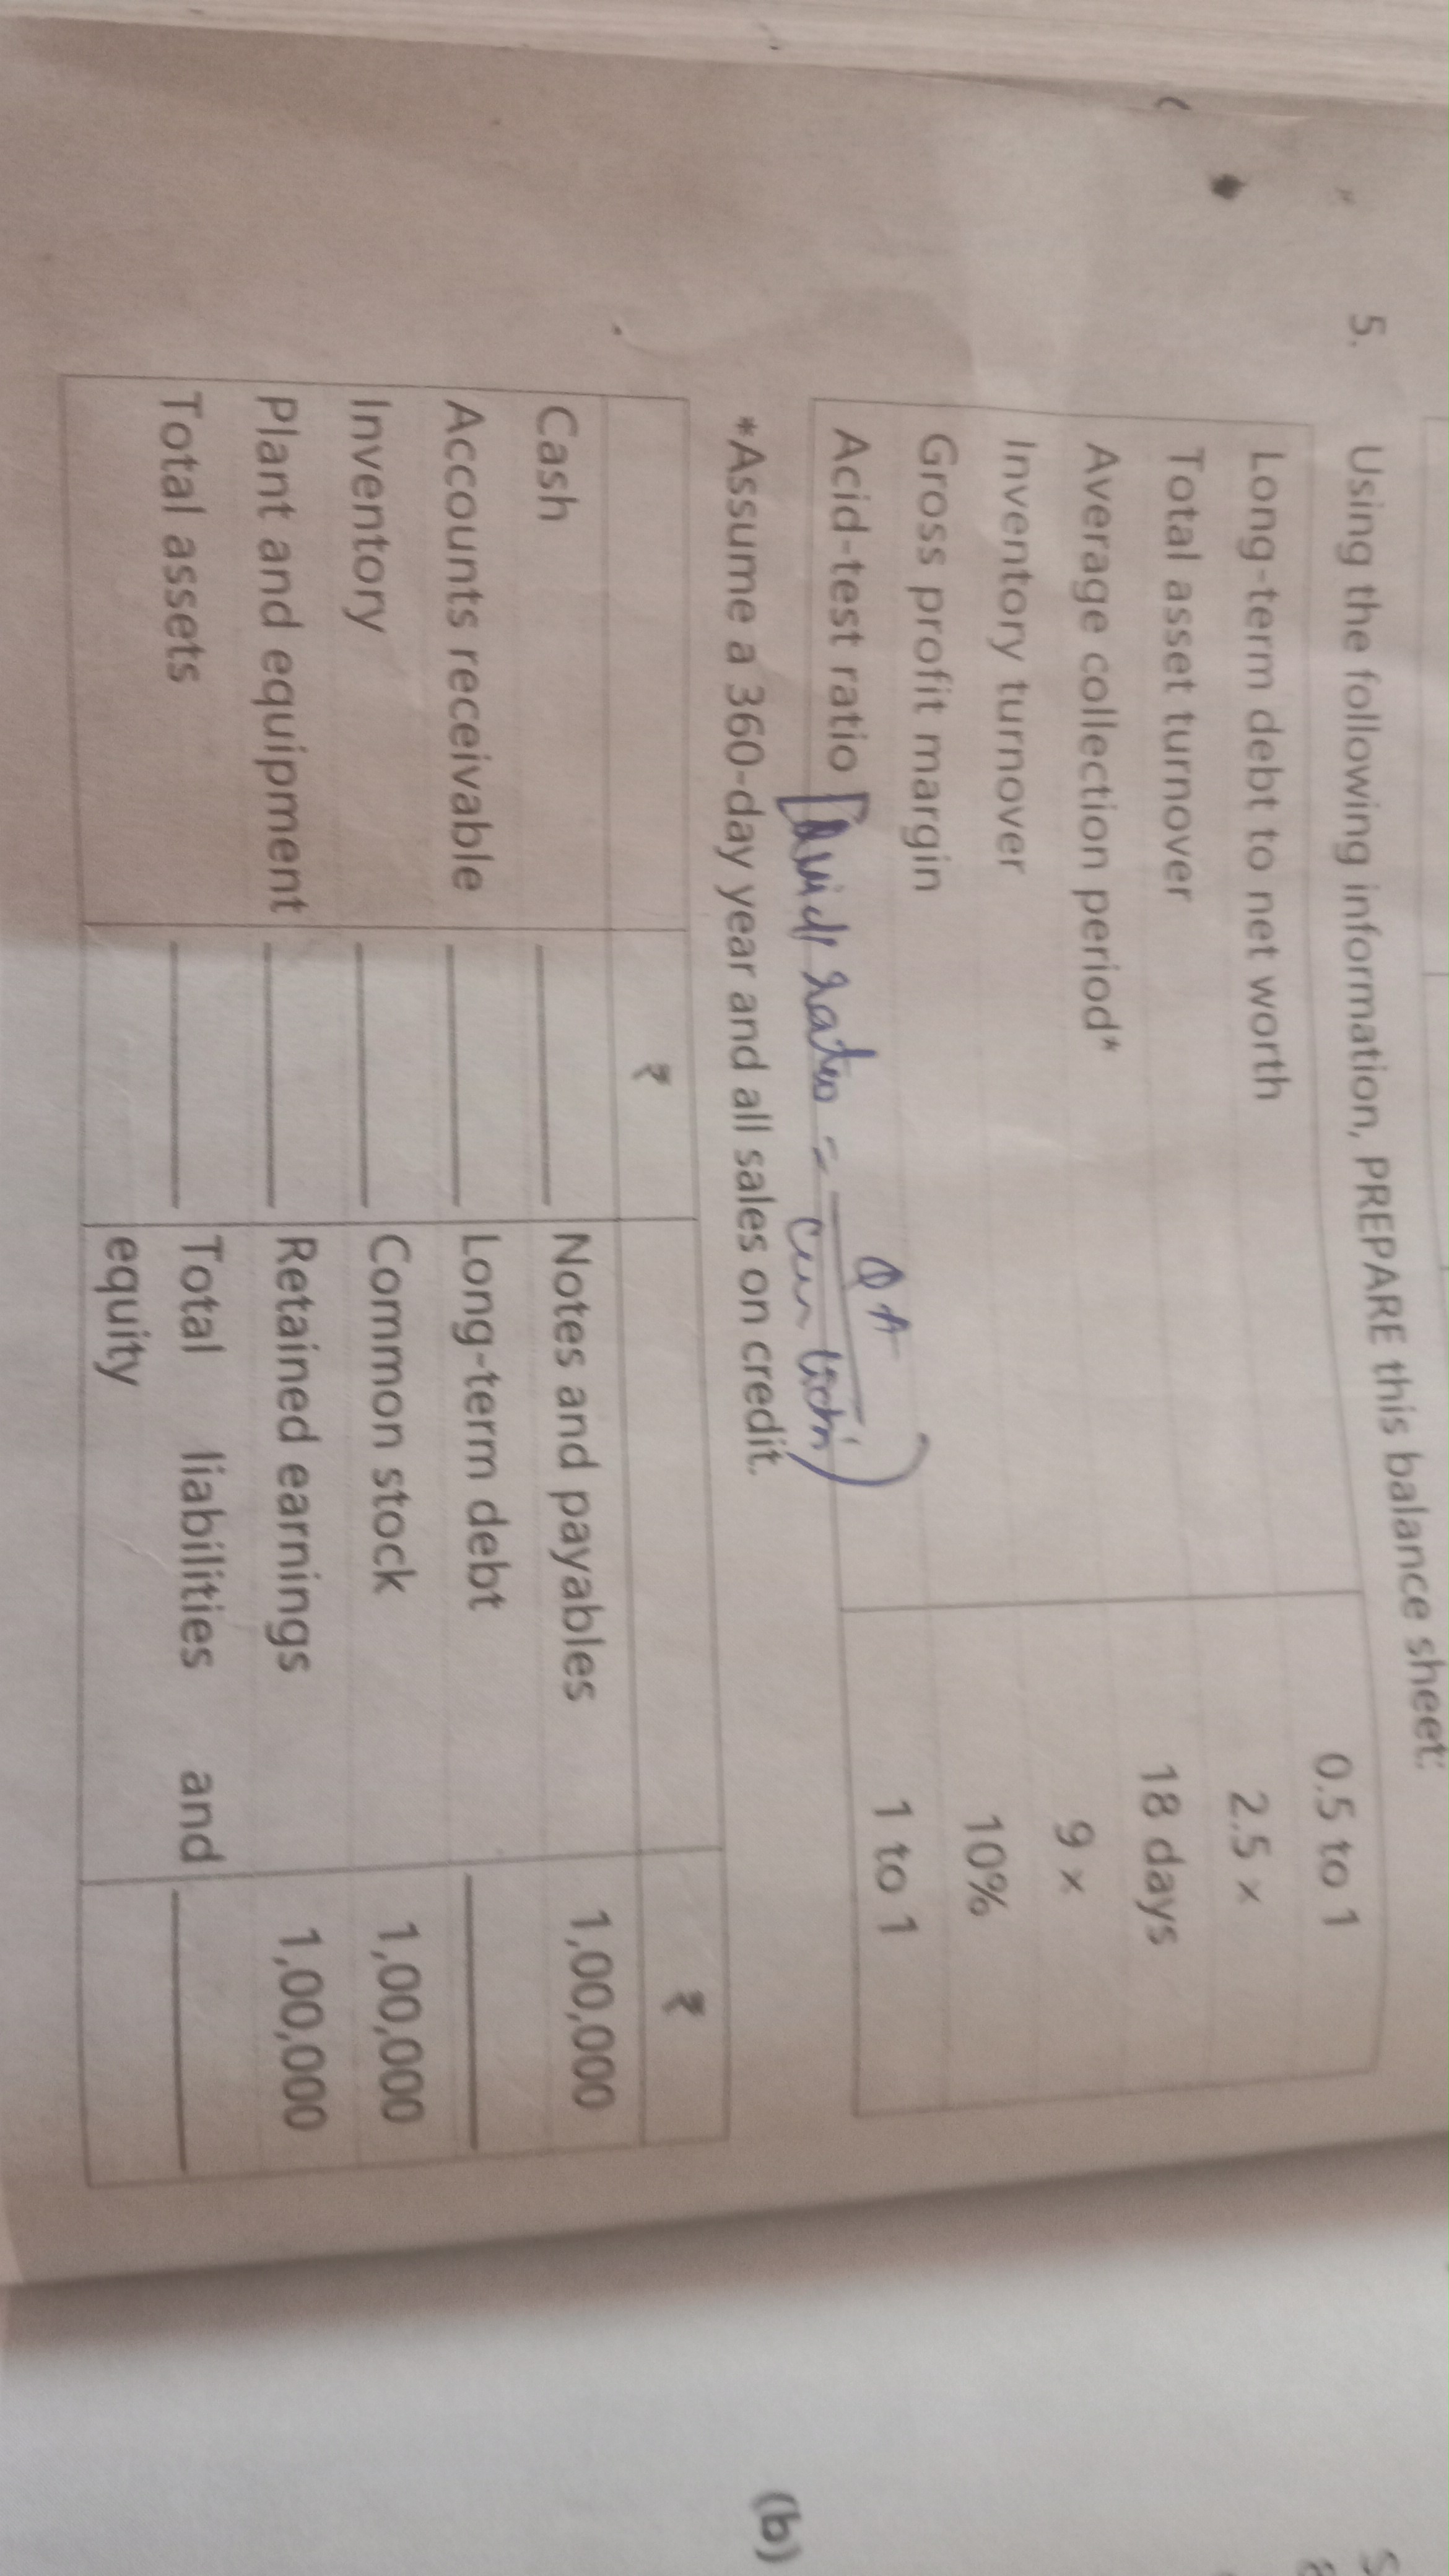 5. Using the following information, PREPARE this balance sheet:
Long-term debt to net worth 0.5 to 1
Total asset turnover 2.5 ×
Average collection period* 18 days
Inventory turnover 9 ×
Gross profit margin 10%
Acid-test ratio 1 to 1
ratio = QA
*Assume a 360-day year and all sales on credit.
₹ ₹
Cash Notes and payables 1,00,000
Accounts receivable Long-term debt
Inventory Common stock 1,00,000
Plant and equipment Retained earnings 1,00,000
Total assets Total liabilities and
equity
(b)